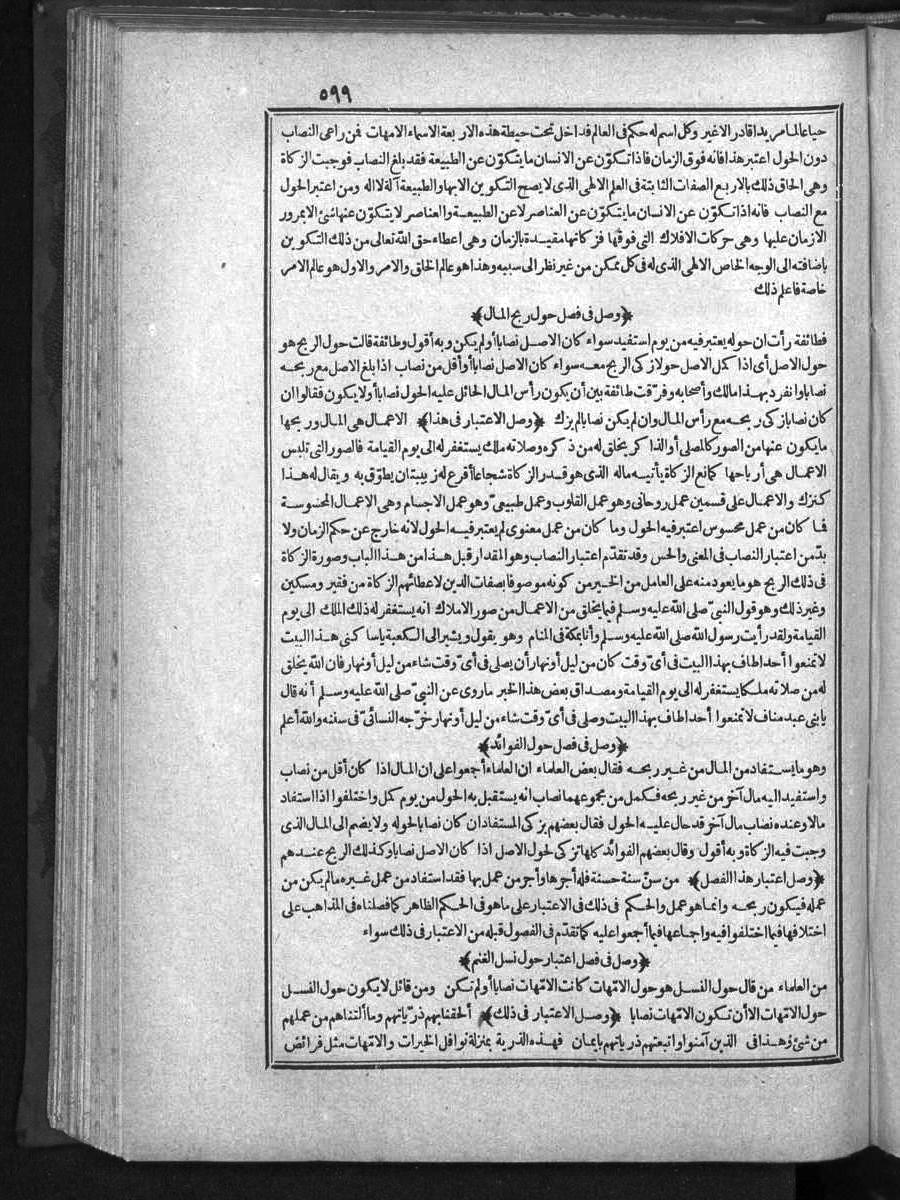 ٥٩٩
حيا عالما مريدا قادرا لا غير وكل اسم له حكم فى العالم فداخل تحت حيطة هذه الاربعة الاسماء الامهات فمن راعى النصاب
دون الحول اعتبر هذا فانه فوق الزمان فاذا تكوّن عن الانسان ما يتكوّن عن الطبيعة فقد بلغ النصاب فوجبت الزكاة
وهى الحاق ذلك بالاربع الصفات الثابتة فى العلم الالهى الذى لا يصح التكوين الا بها والطبيعة آلة لا اله ومن اعتبر الحول
مع النصاب فانه اذا تكوّن عن الانسان ما يتكوّن عن العناصر لا عن الطبيعة والعناصر لا يتكوّن عنها شئ الا بمرور
الازمان عليها وهى حركات الافلاك التى فوقها فزكاتها مقيدة بالزمان وهى اعطاء حق الله تعالى من ذلك التكوين
باضافته الى الوجه الخاص الالهى الذى له فى كل ممكن من غير نظر الى سببه وهذا هو عالم الخلق والامر والاول هو عالم الامر
خاصة فاعلم ذلك
﴿وصل فى فصل حول ربح المال﴾
فطائفة رأت ان حوله يعتبر فيه من يوم استفيد سواء كان الاصل نصابا أو لم يكن وبه أقول وطائفة قالت حول الربح هو
حول الاصل أى اذا كمل الاصل حولا زكى الربح معه سواء كان الاصل نصابا أو أقل من نصاب اذا بلغ الاصل مع ربحه
نصابا وانفرد بهذا مالك وأصحابه وفرّقت طائفة بين أن يكون رأس المال الحائل عليه الحول نصابا أو لا يكون فقالوا ان
كان نصابا زكى ربحه مع رأس المال وان لم يكن نصابا لم يزك ﴿وصل الاعتبار فى هذا﴾ الاعمال هى المال وربحها
ما يكون عنها من الصور كالمصلى أو الذاكر يخلق له من ذكره وصلاته ملك يستغفر له الى يوم القيامة فالصور التى تلبس
الاعمال هى أرباحها كمانع الزكاة يأتيه ماله الذى هو قدر الزكاة شجاعا أقرع له زبيبتان يطوّق به ويقال له هذا
كنزك والاعمال على قسمين عمل روحانى وهو عمل القلوب وعمل طبيعىّ وهو عمل الاجسام وهى الاعمال المحسوسة
فما كان من عمل محسوس اعتبر فيه الحول وما كان من عمل معنوى لم يعتبر فيه الحول لانه خارج عن حكم الزمان ولا
بدّ من اعتبار النصاب فى المعنى والحس وقد تقدّم اعتبار النصاب وهو المقدار قبل هذا من هذا الباب وصورة الزكاة
فى ذلك الربح هو ما يعود منه على العامل من الخير من كونه موصوفا بصفات الدين لاعطائهم الزكاة من فقير ومسكين
وغير ذلك وهو قول النبىّ صلى الله عليه وسلم فيما يخلق من الاعمال من صور الاملاك انه يستغفر له ذلك الملك الى يوم
القيامة ولقد رأيت رسول الله صلى الله عليه وسلم وأنا بمكة فى المنام وهو يقول ويشير الى الكعبة يا ساكنى هذا البيت
لا تمنعوا أحدا طاف بهذا البيت فى أىّ وقت كان من ليل أو نهار أن يصلى فى أىّ وقت شاء من ليل أو نهار فان الله يخلق
له من صلاته ملكا يستغفر له الى يوم القيامة ومصداق بعض هذا الخبر ما روى عن النبىّ صلى الله عليه وسلم أنه قال
يا بنى عبد مناف لا تمنعوا أحدا طاف بهذا البيت وصلى فى أىّ وقت شاء من ليل أو نهار خرّجه النسائىّ فى سننه والله أعلم
﴿وصل فى فصل حول الفوائد﴾
وهو ما يستفاد من المال من غير ربحه فقال بعض العلماء ان العلماء أجمعوا على ان المال اذا كان أقل من نصاب
واستفيد اليه مال آخر من غير ربحه فكمل من مجموعهما نصاب انه يستقبل به الحول من يوم كمل واختلفوا اذا استفاد
مالا وعنده نصاب مال آخر قد حال عليه الحول فقال بعضهم يزكى المستفاد ان كان نصابا لحوله ولا يضم الى المال الذى
وجبت فيه الزكاة وبه أقول وقال بعضهم الفوائد كلها تزكى لحول الاصل اذا كان الاصل نصابا وكذلك الربح عندهم
﴿وصل اعتبار هذا الفصل﴾ من سنّ سنة حسنة فله أجرها وأجر من عمل بها فقد استفاد من عمل غيره ما لم يكن من
عمله فيكون ربحه وانما هو عمل والحكم فى ذلك فى الاعتبار على ما هو فى الحكم الظاهر كما فصلناه فى المذاهب على
اختلافها فيما اختلفوا فيه واجماعها فيما أجمعوا عليه كما تقدّم فى الفصول قبله من الاعتبار فى ذلك سواء
﴿وصل فى فصل اعتبار حول نسل الغنم﴾
من العلماء من قال حول النسل هو حول الامّهات كانت الامّهات نصابا أو لم تكن ومن قائل لا يكون حول النسل
حول الامّهات الا أن تكون الامّهات نصابا ﴿وصل الاعتبار فى ذلك﴾ ألحقنا بهم ذرّياتهم وما ألتناهم من عملهم
من شئ وهذا فى الذين آمنوا واتبعتهم ذرياتهم بايمان فهذه الذرية بمنزلة نوافل الخيرات والامّهات مثل فرائض